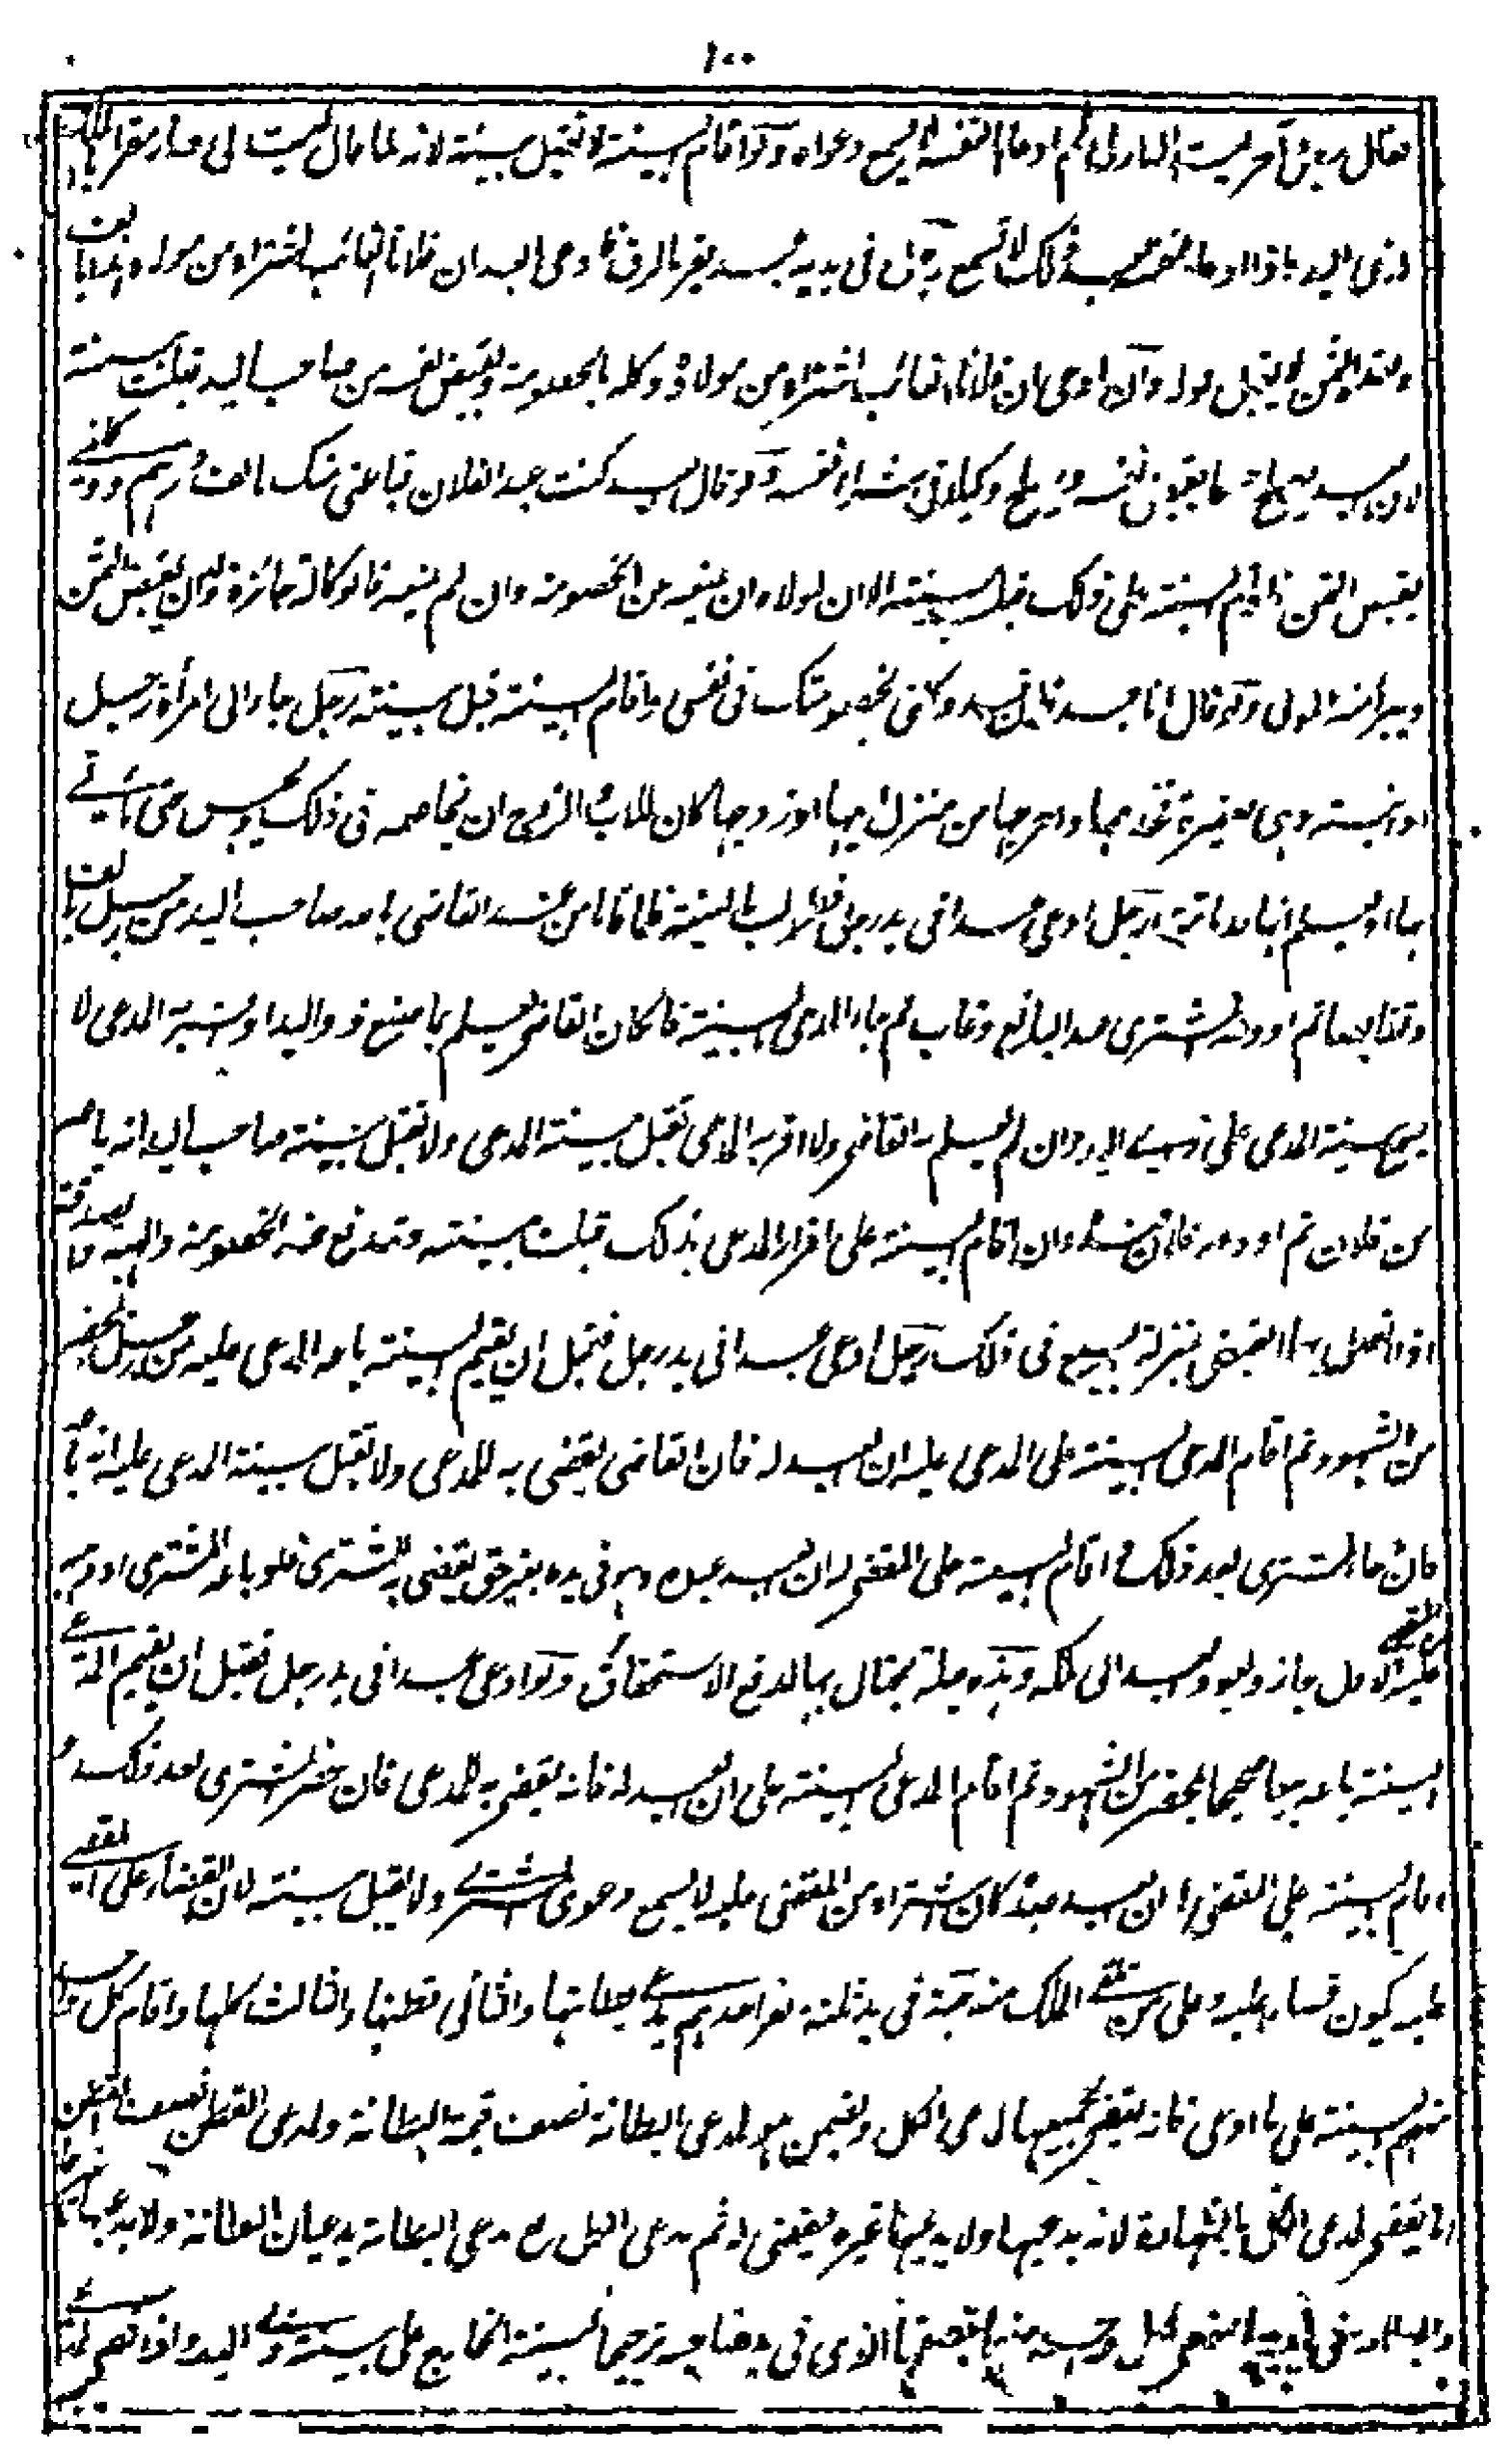 ١٠٠
ثم ادعاها لنفسه لا يسمع دعواه ولو اقام البينة لا تقبل بينته لانه لما قال ليست لي صار مقرا
لذي اليد فاذا ادعاه لنفسه بعد ذلك لا تسمع في يديه عبد يقر بالرق فادعى العبد ان فلانا الغائب اشتراه من مولاه بالف
ونقد الثمن لا يقبل قوله وان ادعى ان فلانا الغائب اشتراه من مولاه ووكله بالخصومة وبقبض نفسه من صاحب اليد قبلت بينته
لان العبد يصلح وكيلا في شراء نفسه ولو قال العبد كنت عبدا لفلان فباعني منك بالف درهم ووكلني
بقبض الثمن فاقام البينة على ذلك قبلت بينته الا ان لمولاه ان يمنعه من الخصومة وان لم يمنعه فالوكالة جائزة وله ان يقبض الثمن
ويبرأ منه المولى ولو قال انا عبد فلان وكلني بخصومتك في نفسي واقام البينة قبل بينته رجل جاء الى امرأة رجل
او ابنته وهي صغيرة فخدعها واخرجها من منزل ابيها او زوجها كان للاب والزوج ان يخاصمه في ذلك ويحبس حتى ياتي
بها او يعلم انها ماتت رجل ادعى عبدا في يد رجل فلما قاما من عند القاضي باعه صاحب اليد من رجل بالف
وتقابضا ثم اودعه المشتري عند البائع وغاب ثم جاء المدعي بالبينة فان كان القاضي يعلم بما صنع ذو اليد او اقر به المدعي لا
يسمع بينة المدعي على ذي اليد وان لم يعلم به القاضي ولا اقر به المدعي تقبل بينة المدعي ولا تقبل بينة صاحب اليد انه باعه
من فلان ثم اودعه فلان عنده وان اقام البينة على اقرار المدعي بذلك قبلت بينته وتندفع عنه الخصومة والهبة والصدقة
اذا اتصل بهما القبض بمنزلة البيع في ذلك رجل ادعى عبدا في يد رجل فقبل ان يقيم البينة باعه المدعى عليه من رجل بمحضر
من الشهود ثم اقام المدعي البينة على المدعى عليه ان العبد له فان القاضي يقضي به للمدعي ولا تقبل بينة المدعى عليه انه باعه
فان جاء المشتري بعد ذلك واقام البينة على المقضي له ان العبد عبده وهو في يده بغير حق يقضي به للمشتري فلو باعه المشتري او وهبه
من المقضي عليه الاول جاز ويعود العبد الى ملكه وهذه حيلة يحتال بها لدفع الاستحقاق ولو ادعى عبدا في يد رجل فقبل ان يقيم المدعي
البينة باعه بيعا صحيحا بمحضر من الشهود ثم اقام المدعي البينة على ان العبد له فانه يقضي به للمدعي فان حضر المشتري بعد ذلك و
اقام البينة على المقضي له ان العبد عبده كان اشتراه من المقضي عليه لا يسمع دعوى المشتري ولا يقبل بينته لان القضاء على المقضي
عليه يكون قضاء عليه وعلى من تلقى الملك منه جبة في يد ثلثة نفر احدهم يدعي بطانتها والثاني قطنها والثالث كلها واقام كل واحد
منهم البينة على ما ادعى فانه يقضي بجميعها لمدعي الكل ويضمن هو لمدعي البطانة نصف قيمة البطانة ولمدعي القطن نصف القطن
انما يقضي لمدعي الكل بالظهارة لانه يدعيها ولا يدعيها غيره فيقضي له ثم مدعي الكل مع مدعي البطانة يدعيان البطانة ولا يدعيها
والبطانة في ايديهما فيقضي لكل واحد منهما بنصفها الذي في يد صاحبه ترجيحا لبينة الخارج على بينة ذي اليد واذا